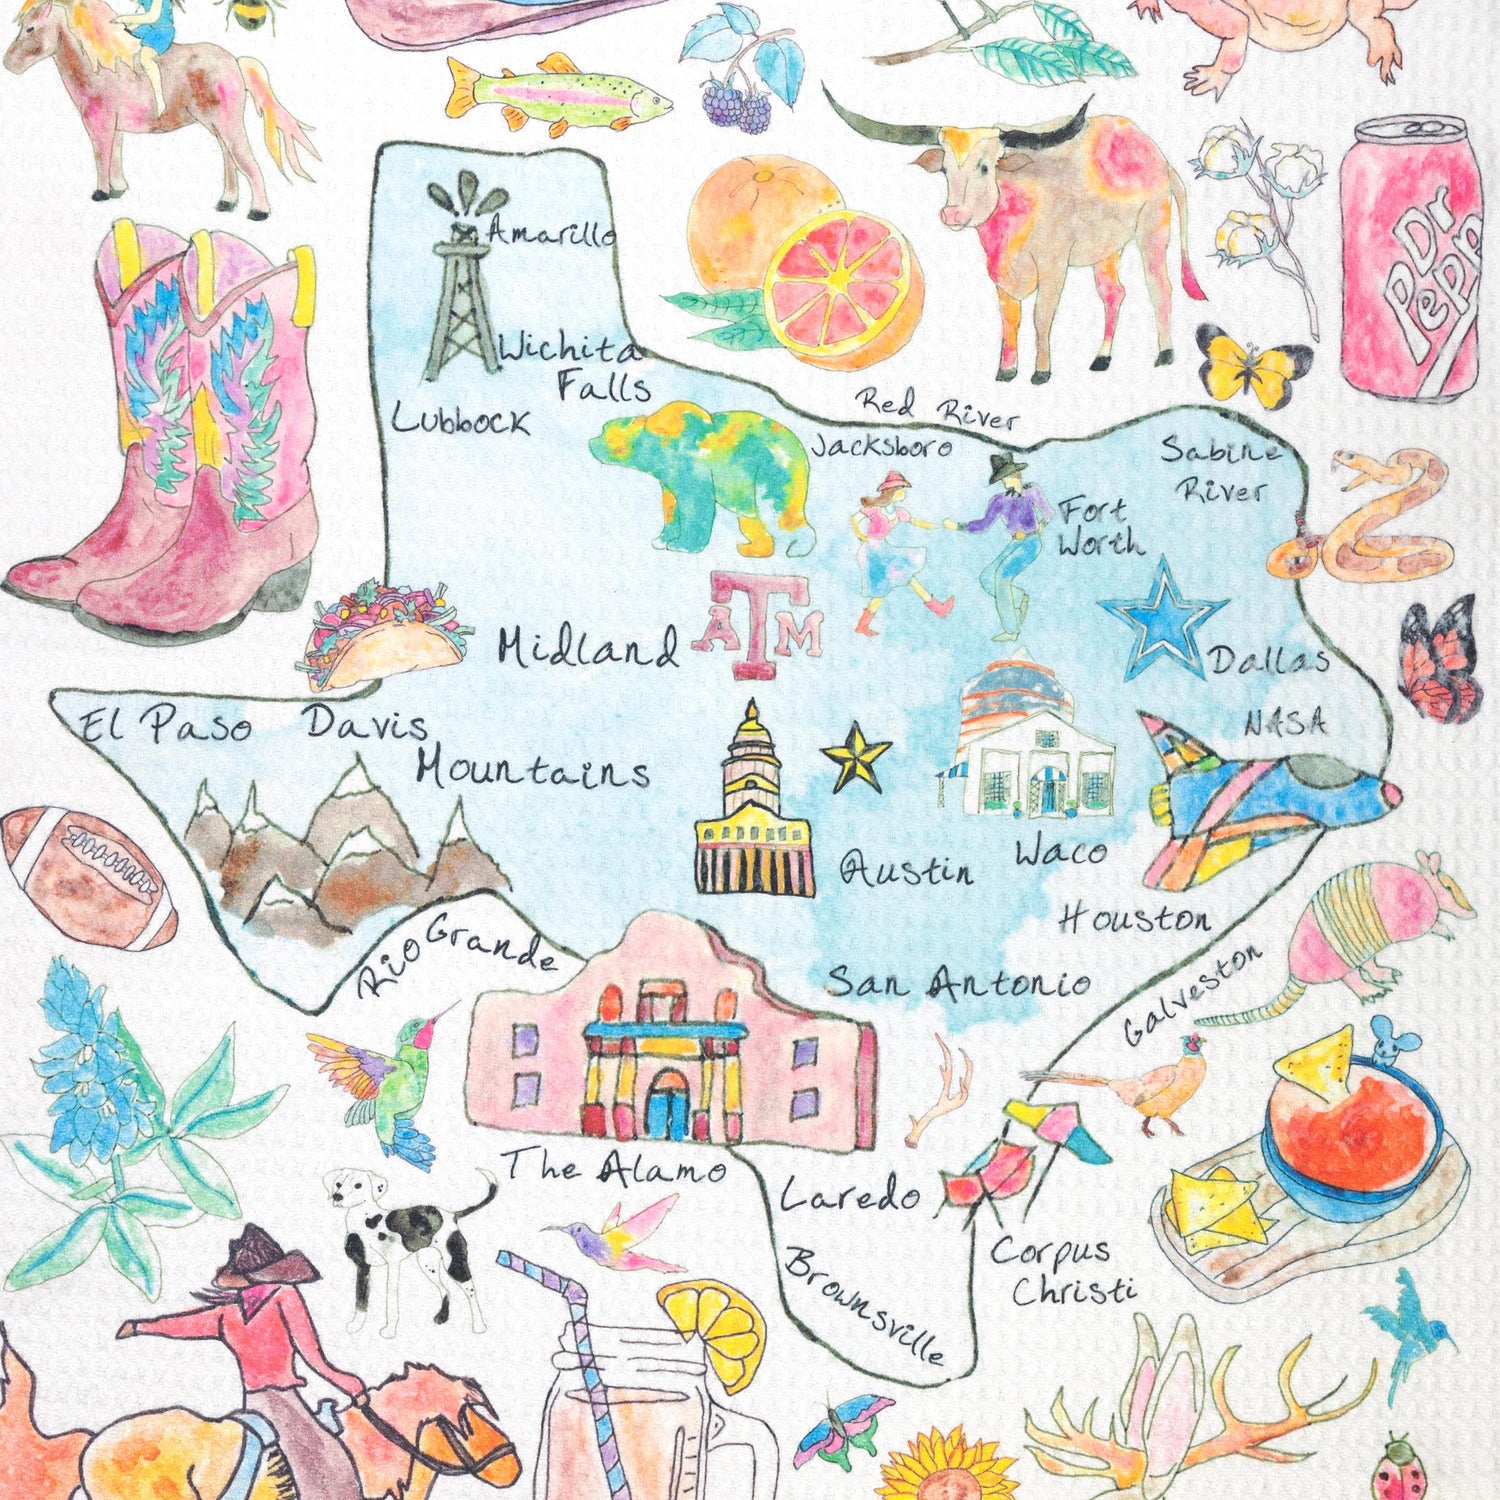 Amarillo
Wichita
Falls
Lubbock
Red River
Jacksboro
Sabine
River
Dr
Pepp
Fort
Worth
Midland
ATM
Dallas
El Paso
Davis
Mountains
NASA
Austin
Waco
Houston
Rio Grande
San Antonio
Galveston
The Alamo
Laredo
Corpus
Christi
Brownsville